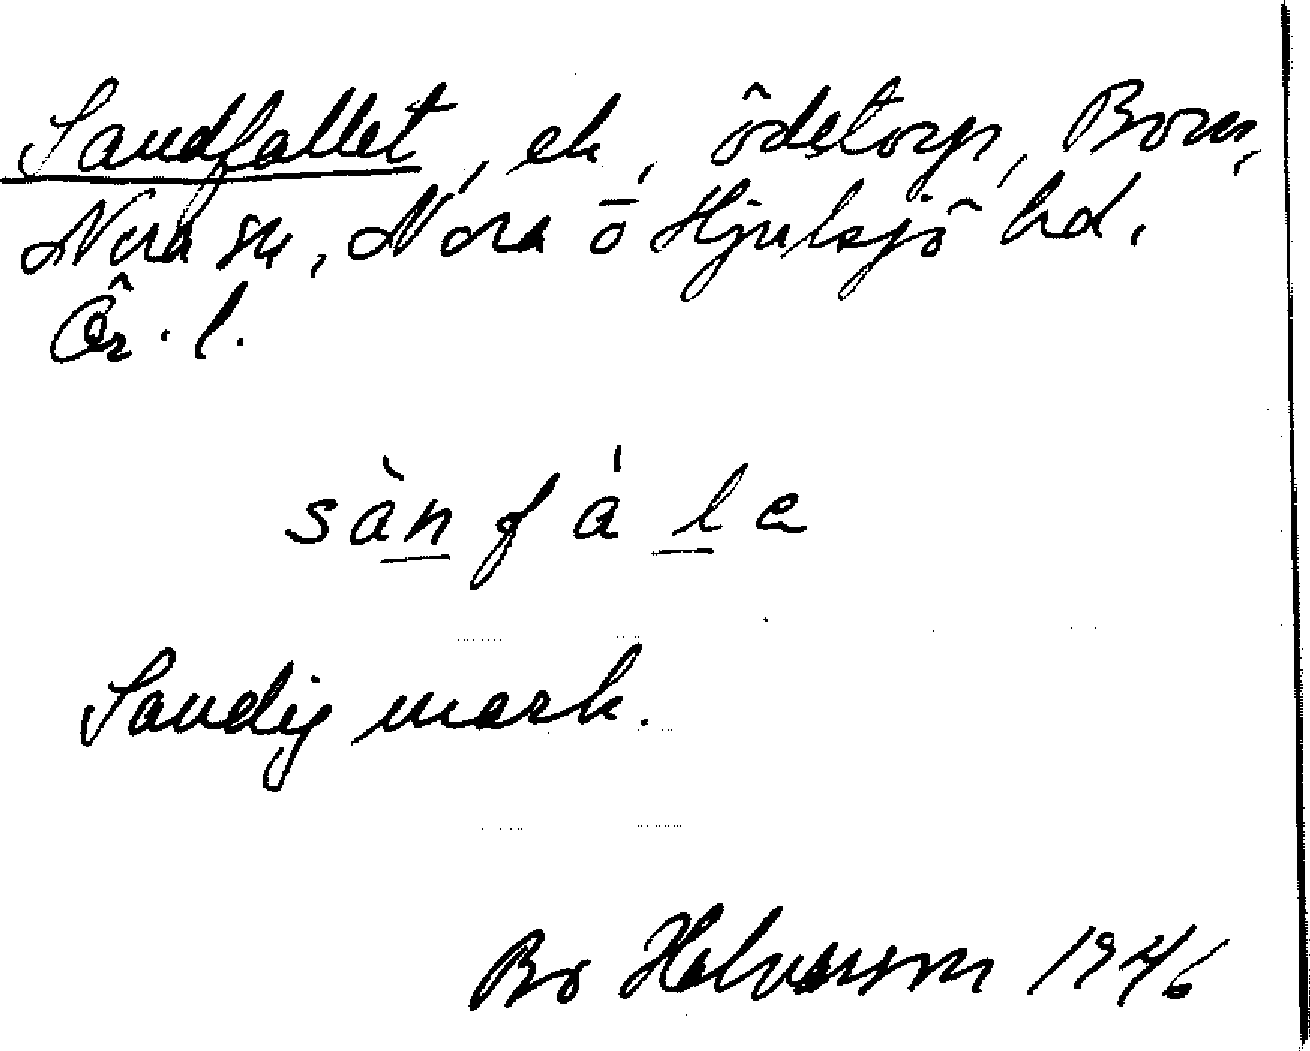 Sandfallet, ek, ödetorp, Born,
Nora sn, Nora o Hjulsjö hd,
Ör. l.
sànfála
Sandig mark.
Bo Halvarson 1946